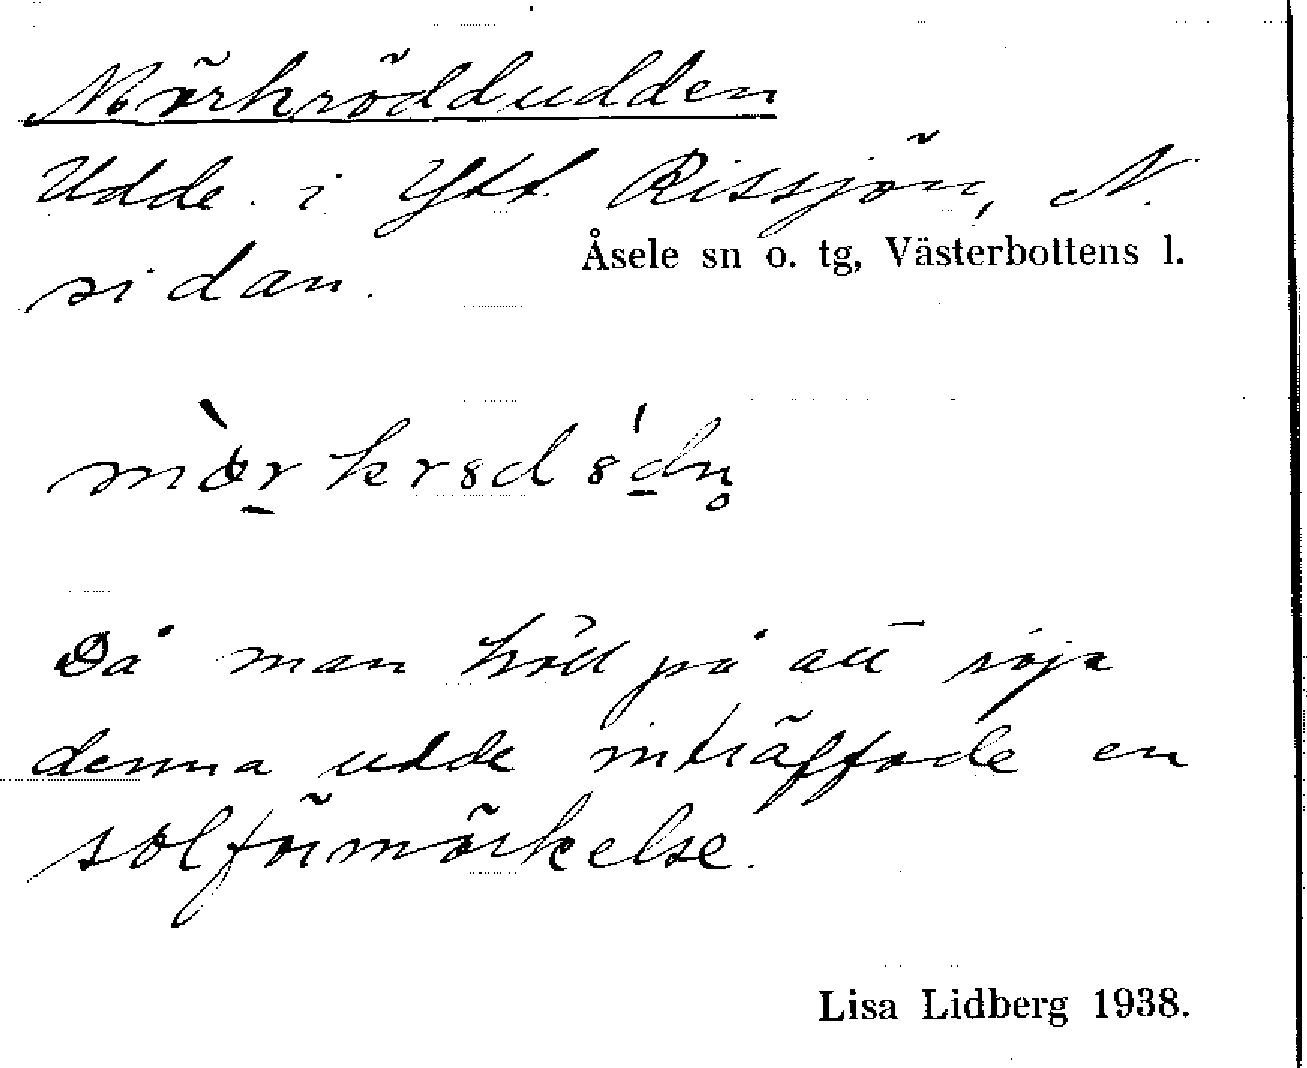 Mörkröddudden
Udde i Ytt Rissjön, N.
Åsele sn o. tg, Västerbottens l.
sidan.
Då man höll på att röja
denna udde inträffade en
solförmörkelse.
Lisa Lidberg 1938.